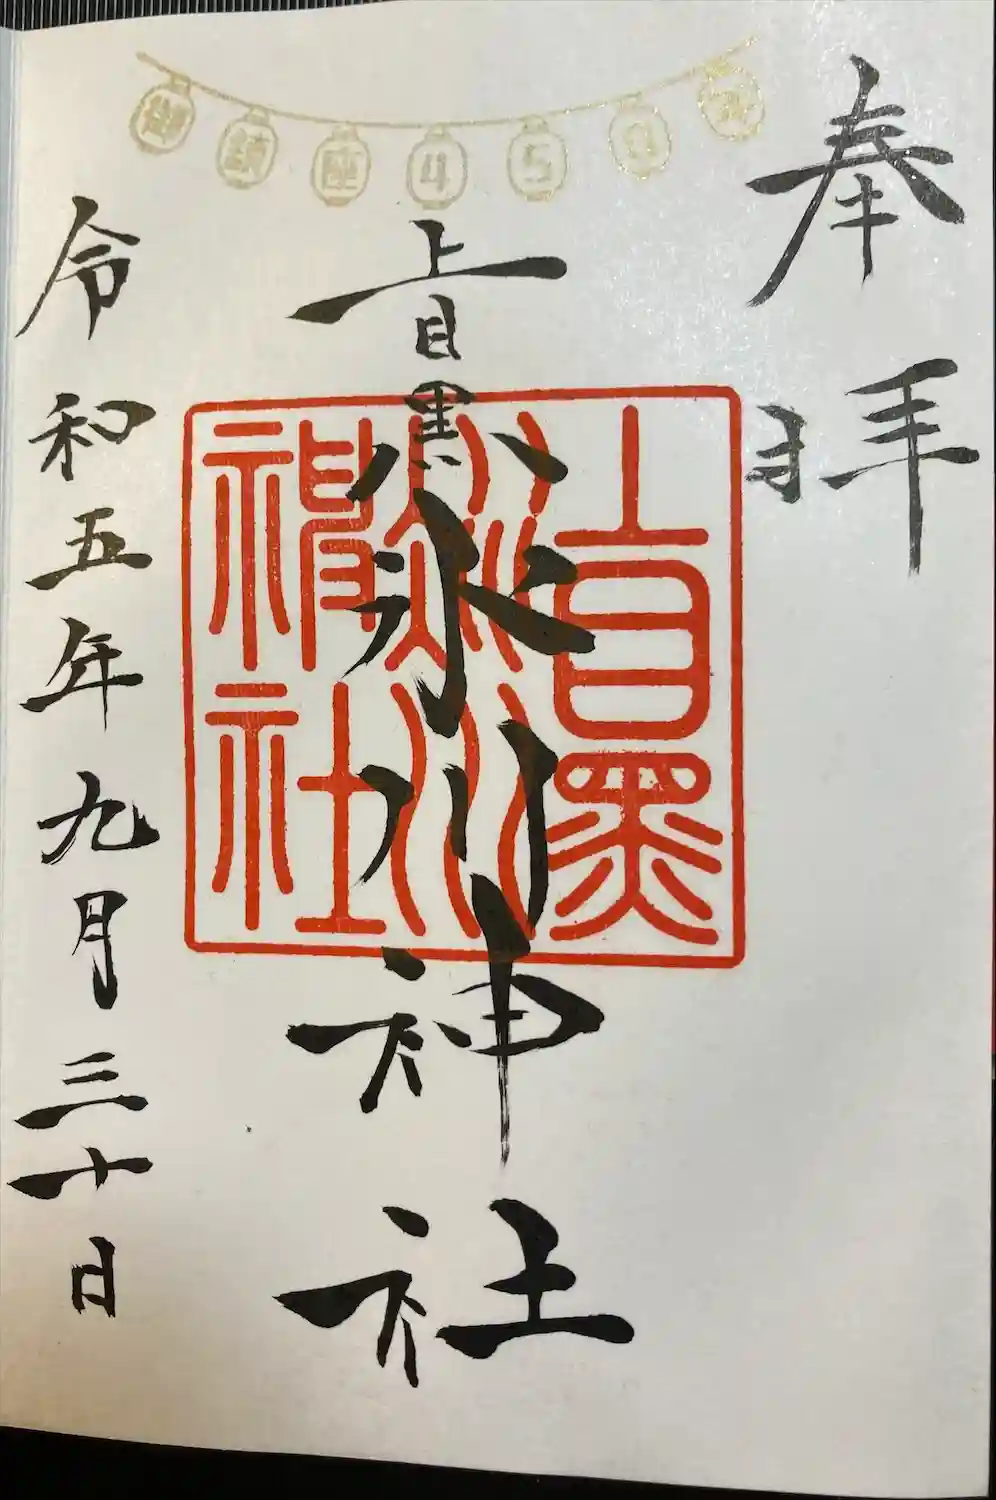 奉拝
御鎮座45
上目黒氷川神社
上目黒
氷川
神社
令和五年九月三十日